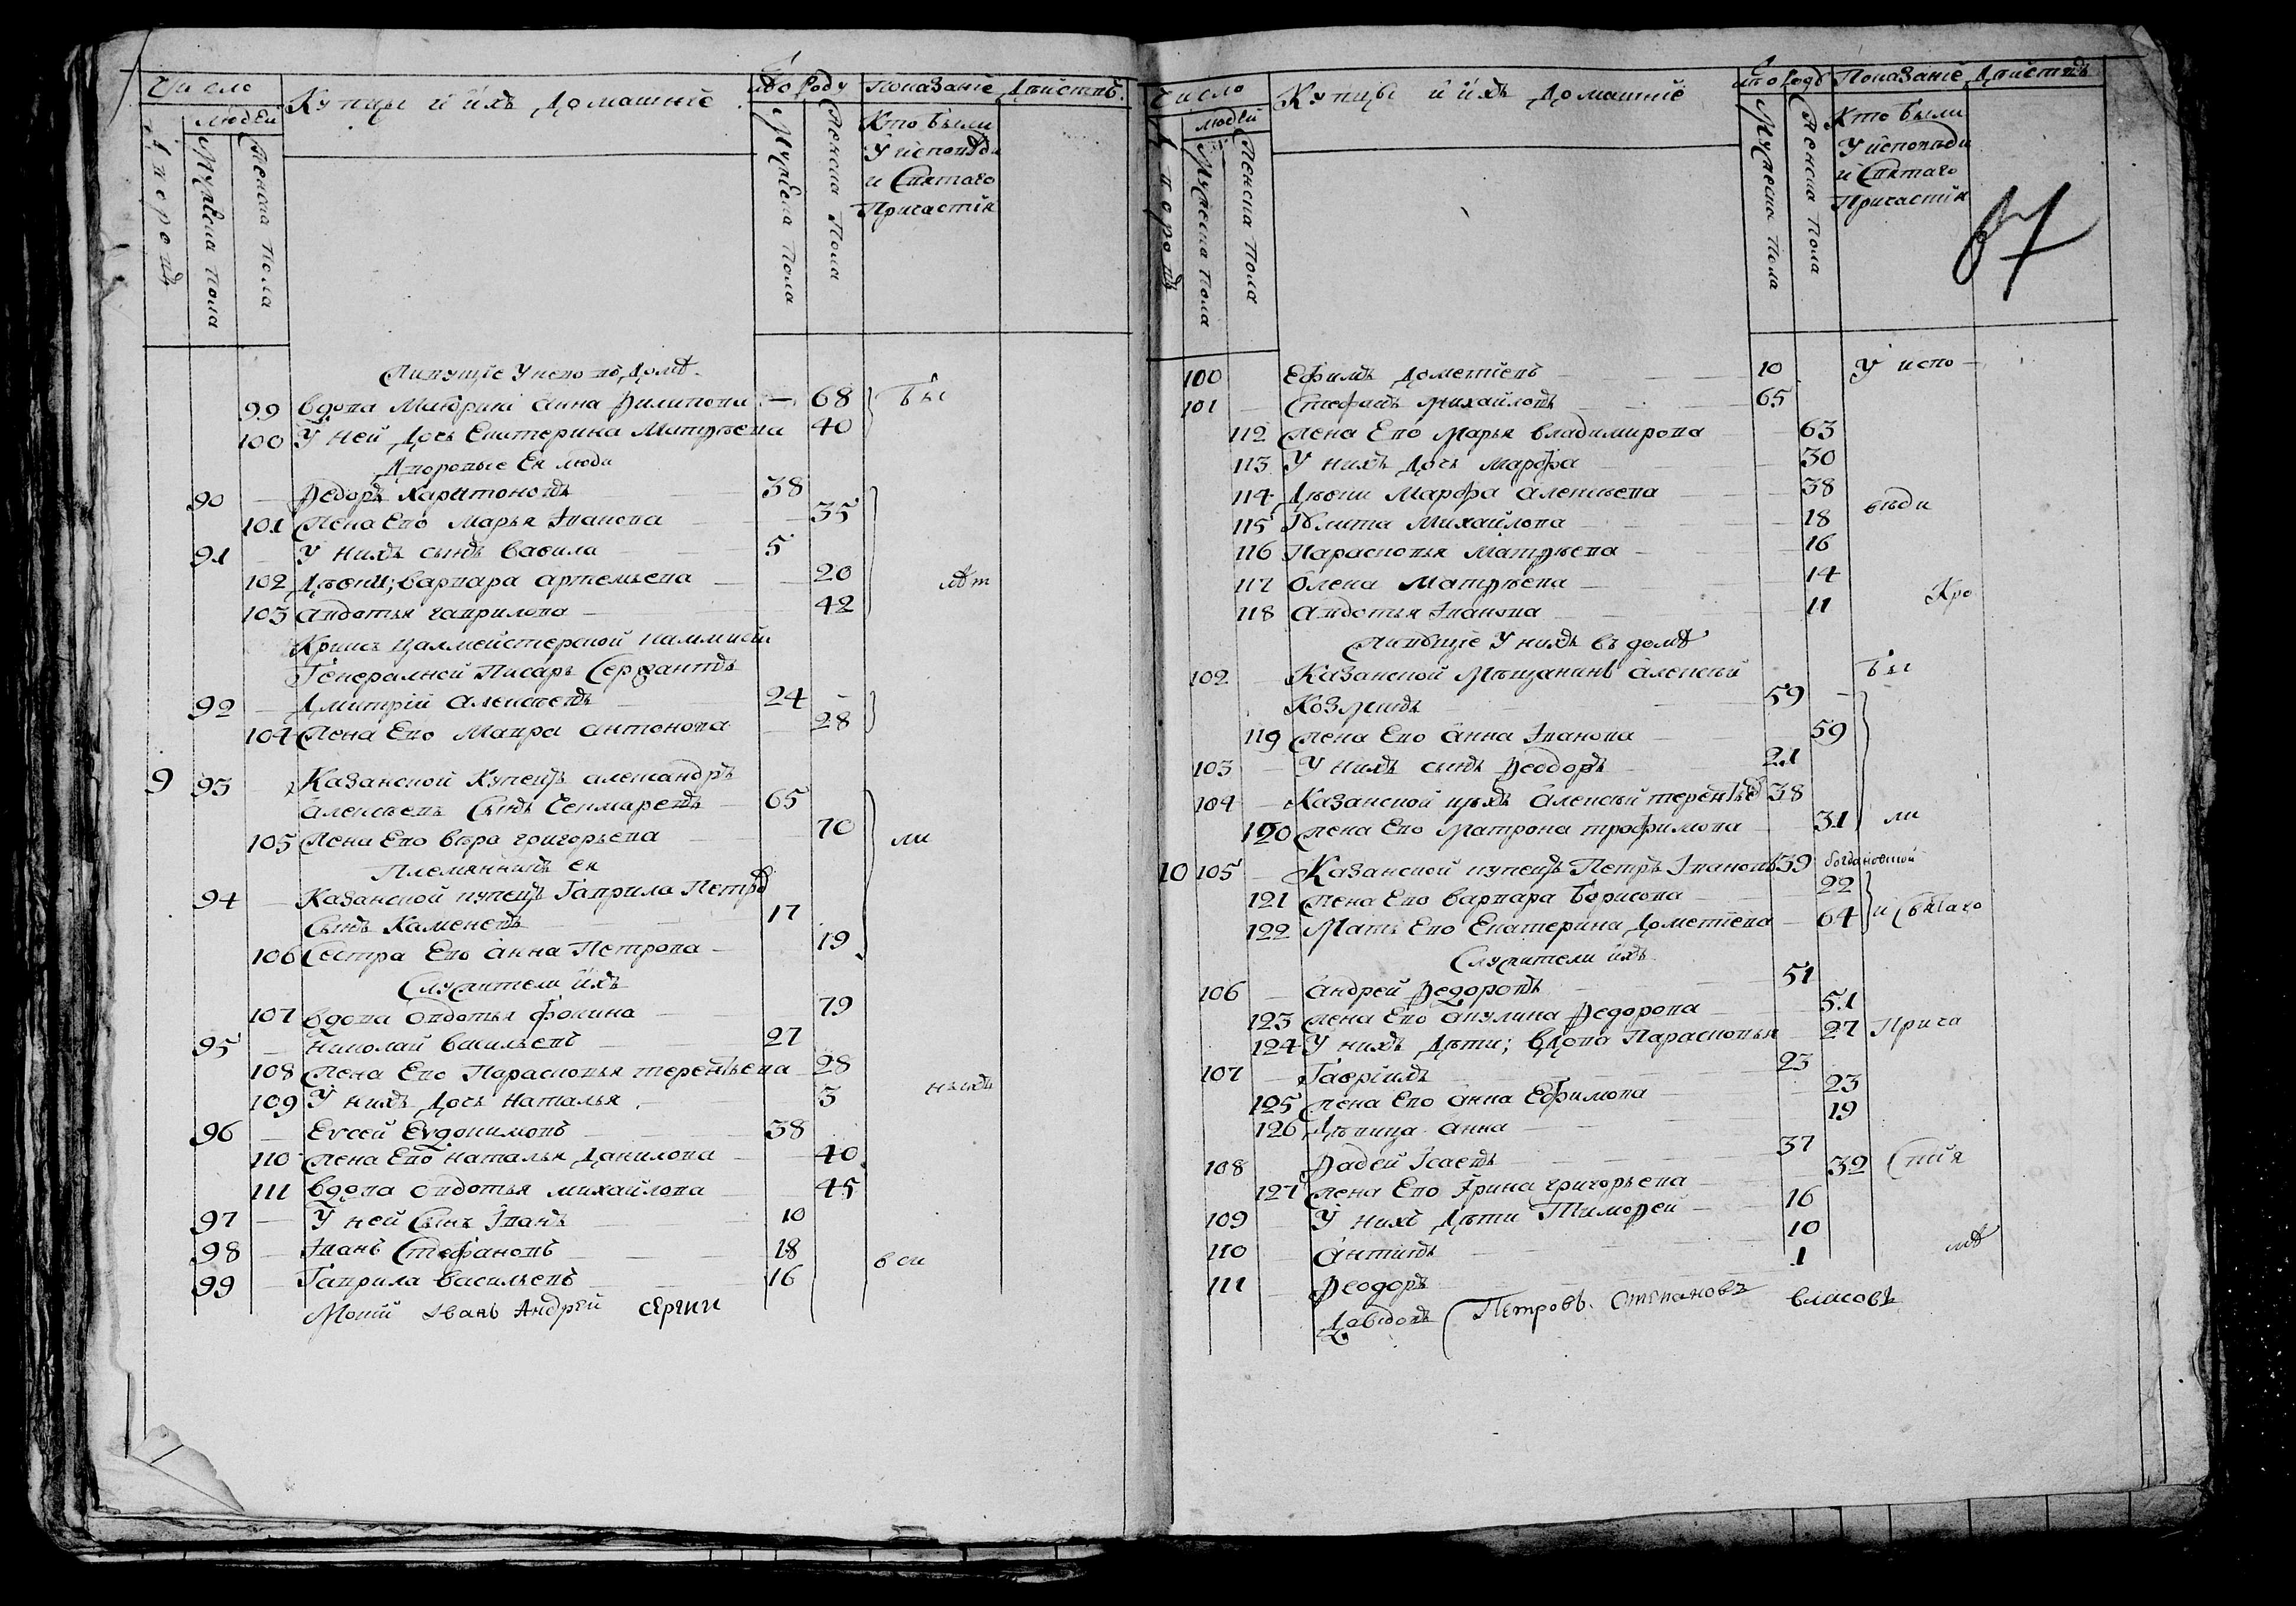 Число
людей
Дворовъ
Мужеска пола
Женска пола
Купцы и ихъ домашніе
кто году
Мужеска пола
Женска пола
Показаніе действъ
Кто были
у исповѣди
и Святаго
Причастія
Живущіе у него въ домѣ
99 вдова анна Филипова — 68 бы
100 У ней дочь Екатерина Матвѣева 40
дворовые ея люди
90 Ѳедоръ Харитоновъ 38
101 жена Его Марья Іванова 35
91 У нихъ сынъ вавила 5
102 Дѣвки; варвара артемьева 20 лѣт
103 авдотья гаврилова 42
Кригсъ Цалмейстерской
Генералной Писарь Сержантъ
92 Дмитрій алексѣевъ 24
104 жена Его Мавра антонова 28
9 93 Казанской Купецъ александръ
алексѣевъ Сынъ 65
105 жена Его вѣра григорьева 70 ли
Племянникъ ея
94 Казанской купецъ Гаврила Петровъ
Сынъ Каменевъ 17
106 Сестра Его анна Петрова 19
Служители ихъ
107 вдова авдотья фомина 79
95 Николай васильевъ 27
108 жена Его Парасковья терентьева 28
109 У нихъ дочь наталья 3
96 Еѵсей Еѵдокимовъ 38
110 жена Его наталья данилова 40
111 вдова авдотья михайлова 45
97 У ней Сынъ Іванъ 10
98 Іванъ Стефановъ 18 вси
99 Гаврила васильевъ 16
Iванъ Андрей сергии
Число
людей
Дворовъ
Мужеска пола
Женска пола
Купцы и ихъ домашніе
кто годъ
Мужеска пола
Женска пола
Показаніе действъ
Кто были
у исповѣди
и Святаго
Причастія
87
100 Ефимъ дометіевъ 10 У испо
101 Стефанъ михайловъ 65
112 жена Его марья владимирова 63
113 У нихъ дочь марфа 30
114 Дѣвки Марфа алексѣева 38
115 Улита Михайлова 18 вѣди
116 Парасковья Матвѣева 16
117 Олена Матвѣева 14
118 авдотья Іванова 11 Кро
живущіе У нихъ въ домѣ
102 Казанской Мѣщанинъ алексѣй бы
Козминъ 59
119 жена Его анна Іванова 59
103 У нихъ сынъ Ѳеодоръ 21
104 Казанской цѣхъ алексѣй терентьевъ 38
120 жена Его Матрона трофимова 31 ли
10 105 Казанской купецъ Петръ Івановъ 39 богдановской
121 жена Его варвара борисова 22
122 Мать Его Екатерина дометіева 64 и Святаго
Служители ихъ
106 андрей Ѳедоровъ 51
123 жена Его акулина Ѳедорова 51
124 У нихъ дѣти; вдова Парасковья 27 Прича
107 Гавріилъ 23
125 жена Его анна Ефимова 23
126 дѣвица анна 19
108 Ѳадей Ісаевъ 37
127 жена Его Ірина григорьева 32 Стія
109 У нихъ дѣти Тимоѳей 16
110 антипъ 10
111 Ѳеодоръ 1 лѣ
Давыдовъ Петровъ Степановъ власовъ